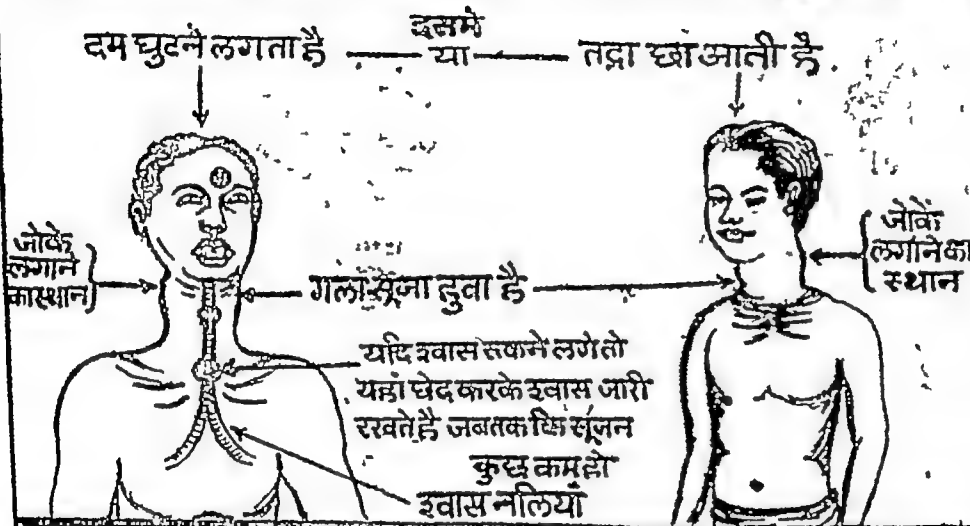 इसमे
दम घुटने लगता है — या — तद्रा छा आती है
जोंके
लगाने
का स्थान
गला सूजा हुवा है
जोंकें
लगाने का
स्थान
यदि श्वास रुकने लगे तो
यहां छेद करके श्वास जारी
रखते है जबतक कि सूजन
कुछ कम हो
श्वास नलियाँ